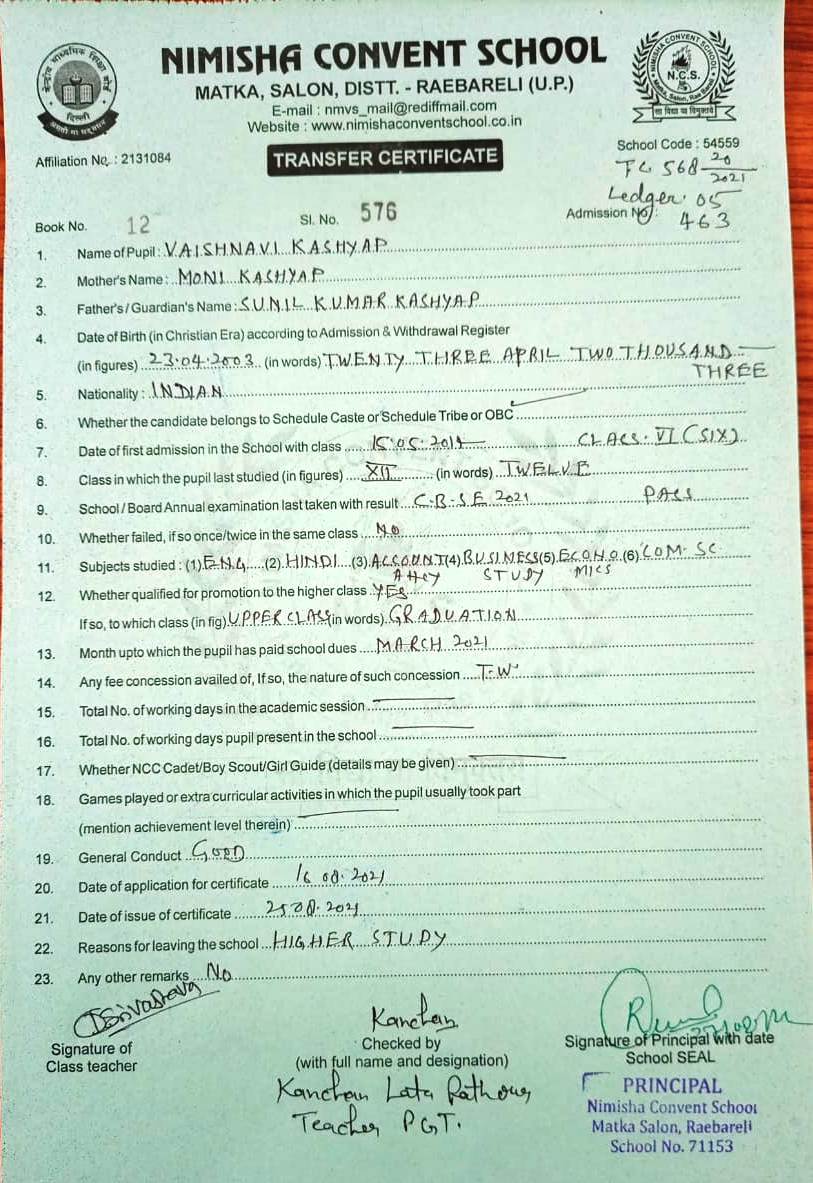 NIMISHA CONVENT SCHOOL
MATKA, SALON, DISTT. - RAEBARELI (U.P.)
E-mail : nmvs_mail@rediffmail.com
Website : www.nimishaconventschool.co.in
केन्द्रीय माध्यमिक शिक्षा बोर्ड
दिल्ली
असतो मा सद्गमय
NIMISHA CONVENT SCHOOL
N.C.S.
Matka, Salon, Rae Bareli
सा विद्या या विमुक्तये
Affiliation No. : 2131084
TRANSFER CERTIFICATE
School Code : 54559
TC 568 20/2021
Ledger. 05
Book No. 12 Sl. No. 576 Admission No. : 463
1. Name of Pupil : VAISHNAVI KASHYAP
2. Mother's Name : MONI KASHYAP
3. Father's / Guardian's Name : SUNIL KUMAR KASHYAP
4. Date of Birth (in Christian Era) according to Admission & Withdrawal Register
(in figures) 23.04.2003 (in words) TWENTY THREE APRIL TWO THOUSAND
THREE
5. Nationality : INDIAN
6. Whether the candidate belongs to Schedule Caste or Schedule Tribe or OBC
7. Date of first admission in the School with class 15.05.2014 CLASS. VI (SIX)
8. Class in which the pupil last studied (in figures) XII (in words) TWELVE
9. School / Board Annual examination last taken with result C.B.S.E 2021 PASS
10. Whether failed, if so once/twice in the same class NO
11. Subjects studied : (1) ENG (2) HINDI (3) ACCOUNT (4) BUSINESS (5) ECONO (6) COM. SC
STUDY MICS
12. Whether qualified for promotion to the higher class YES
If so, to which class (in fig) UPPER CLASS (in words) GRADUATION
13. Month upto which the pupil has paid school dues MARCH 2021
14. Any fee concession availed of, If so, the nature of such concession T.W
15. Total No. of working days in the academic session
16. Total No. of working days pupil present in the school
17. Whether NCC Cadet/Boy Scout/Girl Guide (details may be given)
18. Games played or extra curricular activities in which the pupil usually took part
(mention achievement level therein)
19. General Conduct GOOD
20. Date of application for certificate 16 08. 2021
21. Date of issue of certificate 25 08. 2021
22. Reasons for leaving the school HIGHER STUDY
23. Any other remarks No
DSrivastava
Kanchan
Signature of
Class teacher
Checked by
(with full name and designation)
Kanchan Lata Rathour
Teacher PGT.
Signature of Principal with date
School SEAL
PRINCIPAL
Nimisha Convent School
Matka Salon, Raebareli
School No. 71153